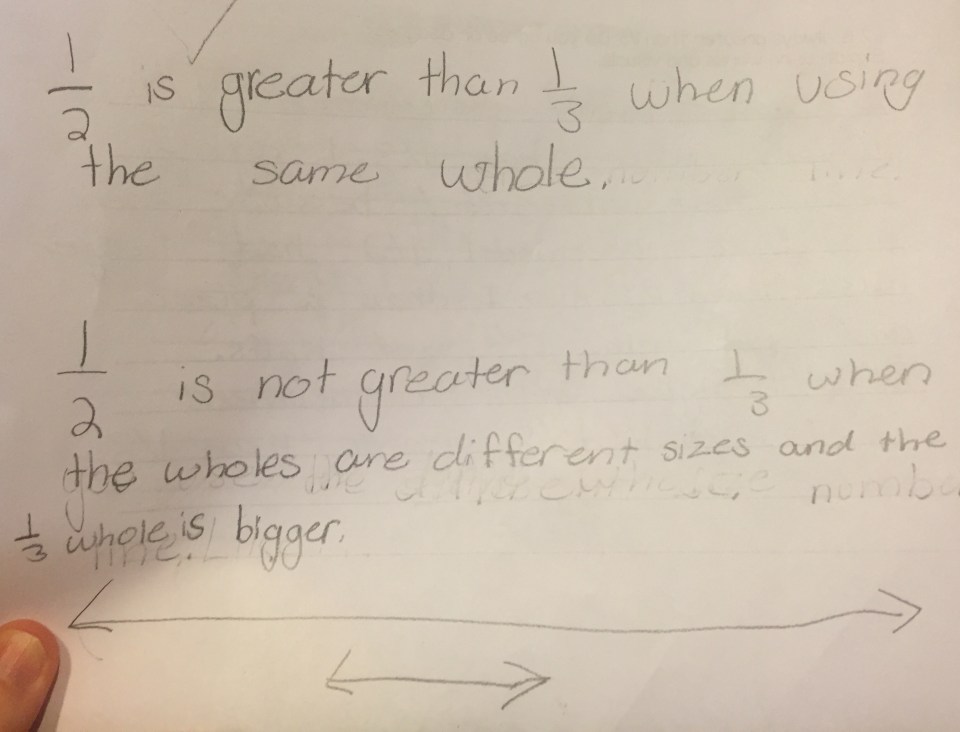 1/2 is greater than 1/3 when using
the same whole.
1/2 is not greater than 1/3 when
the wholes are different sizes and the
1/3 whole is bigger.